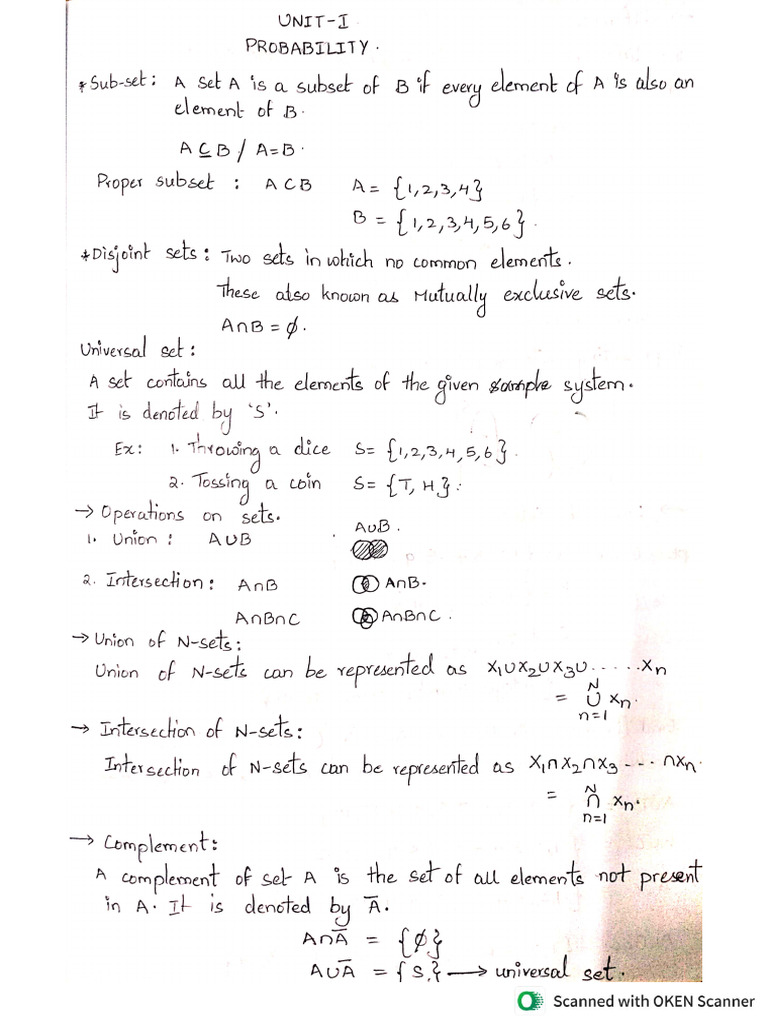 UNIT-I
PROBABILITY.
* Sub-set: A set A is a subset of B if every element of A is also an
element of B.
A ⊆ B / A=B.
Proper subset : A ⊂ B A = {1,2,3,4}
B = {1,2,3,4,5,6}.
* Disjoint sets: Two sets in which no common elements.
These also known as Mutually exclusive sets.
A∩B = ∅.
Universal set:
A set contains all the elements of the given system.
It is denoted by 'S'.
Ex: 1. Throwing a dice S= {1,2,3,4,5,6}.
2. Tossing a coin S= {T, H}.
→ Operations on sets.
1. Union : A∪B A∪B.
2. Intersection: A∩B A∩B.
A∩B∩C A∩B∩C.
→ Union of N-sets:
Union of N-sets can be represented as X₁∪X₂∪X₃∪......Xn
= N ∪ n=1 Xn.
→ Intersection of N-sets:
Intersection of N-sets can be represented as X₁∩X₂∩X₃---∩Xn.
= N ∩ n=1 Xn.
→ Complement:
A complement of set A is the set of all elements not present
in A. It is denoted by A̅.
A∩A̅ = {∅}
A∪A̅ = {S} → universal set.
Scanned with OKEN Scanner